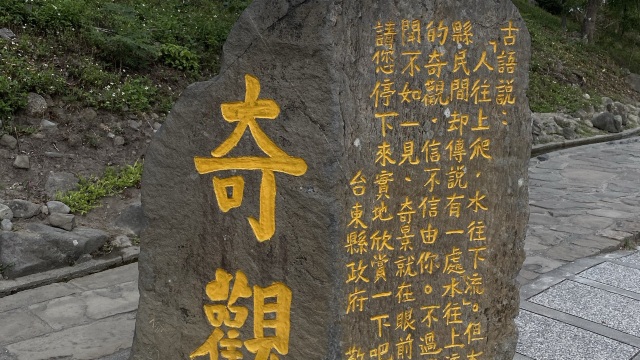 奇觀
古語說：
「人往上爬，水往下流」。但
縣民間却傳說有一處水往上
的奇觀，信不信由你。不過
聞不如一見、奇景就在眼前
請您停下來實地欣賞一下吧
台東縣政府 敬